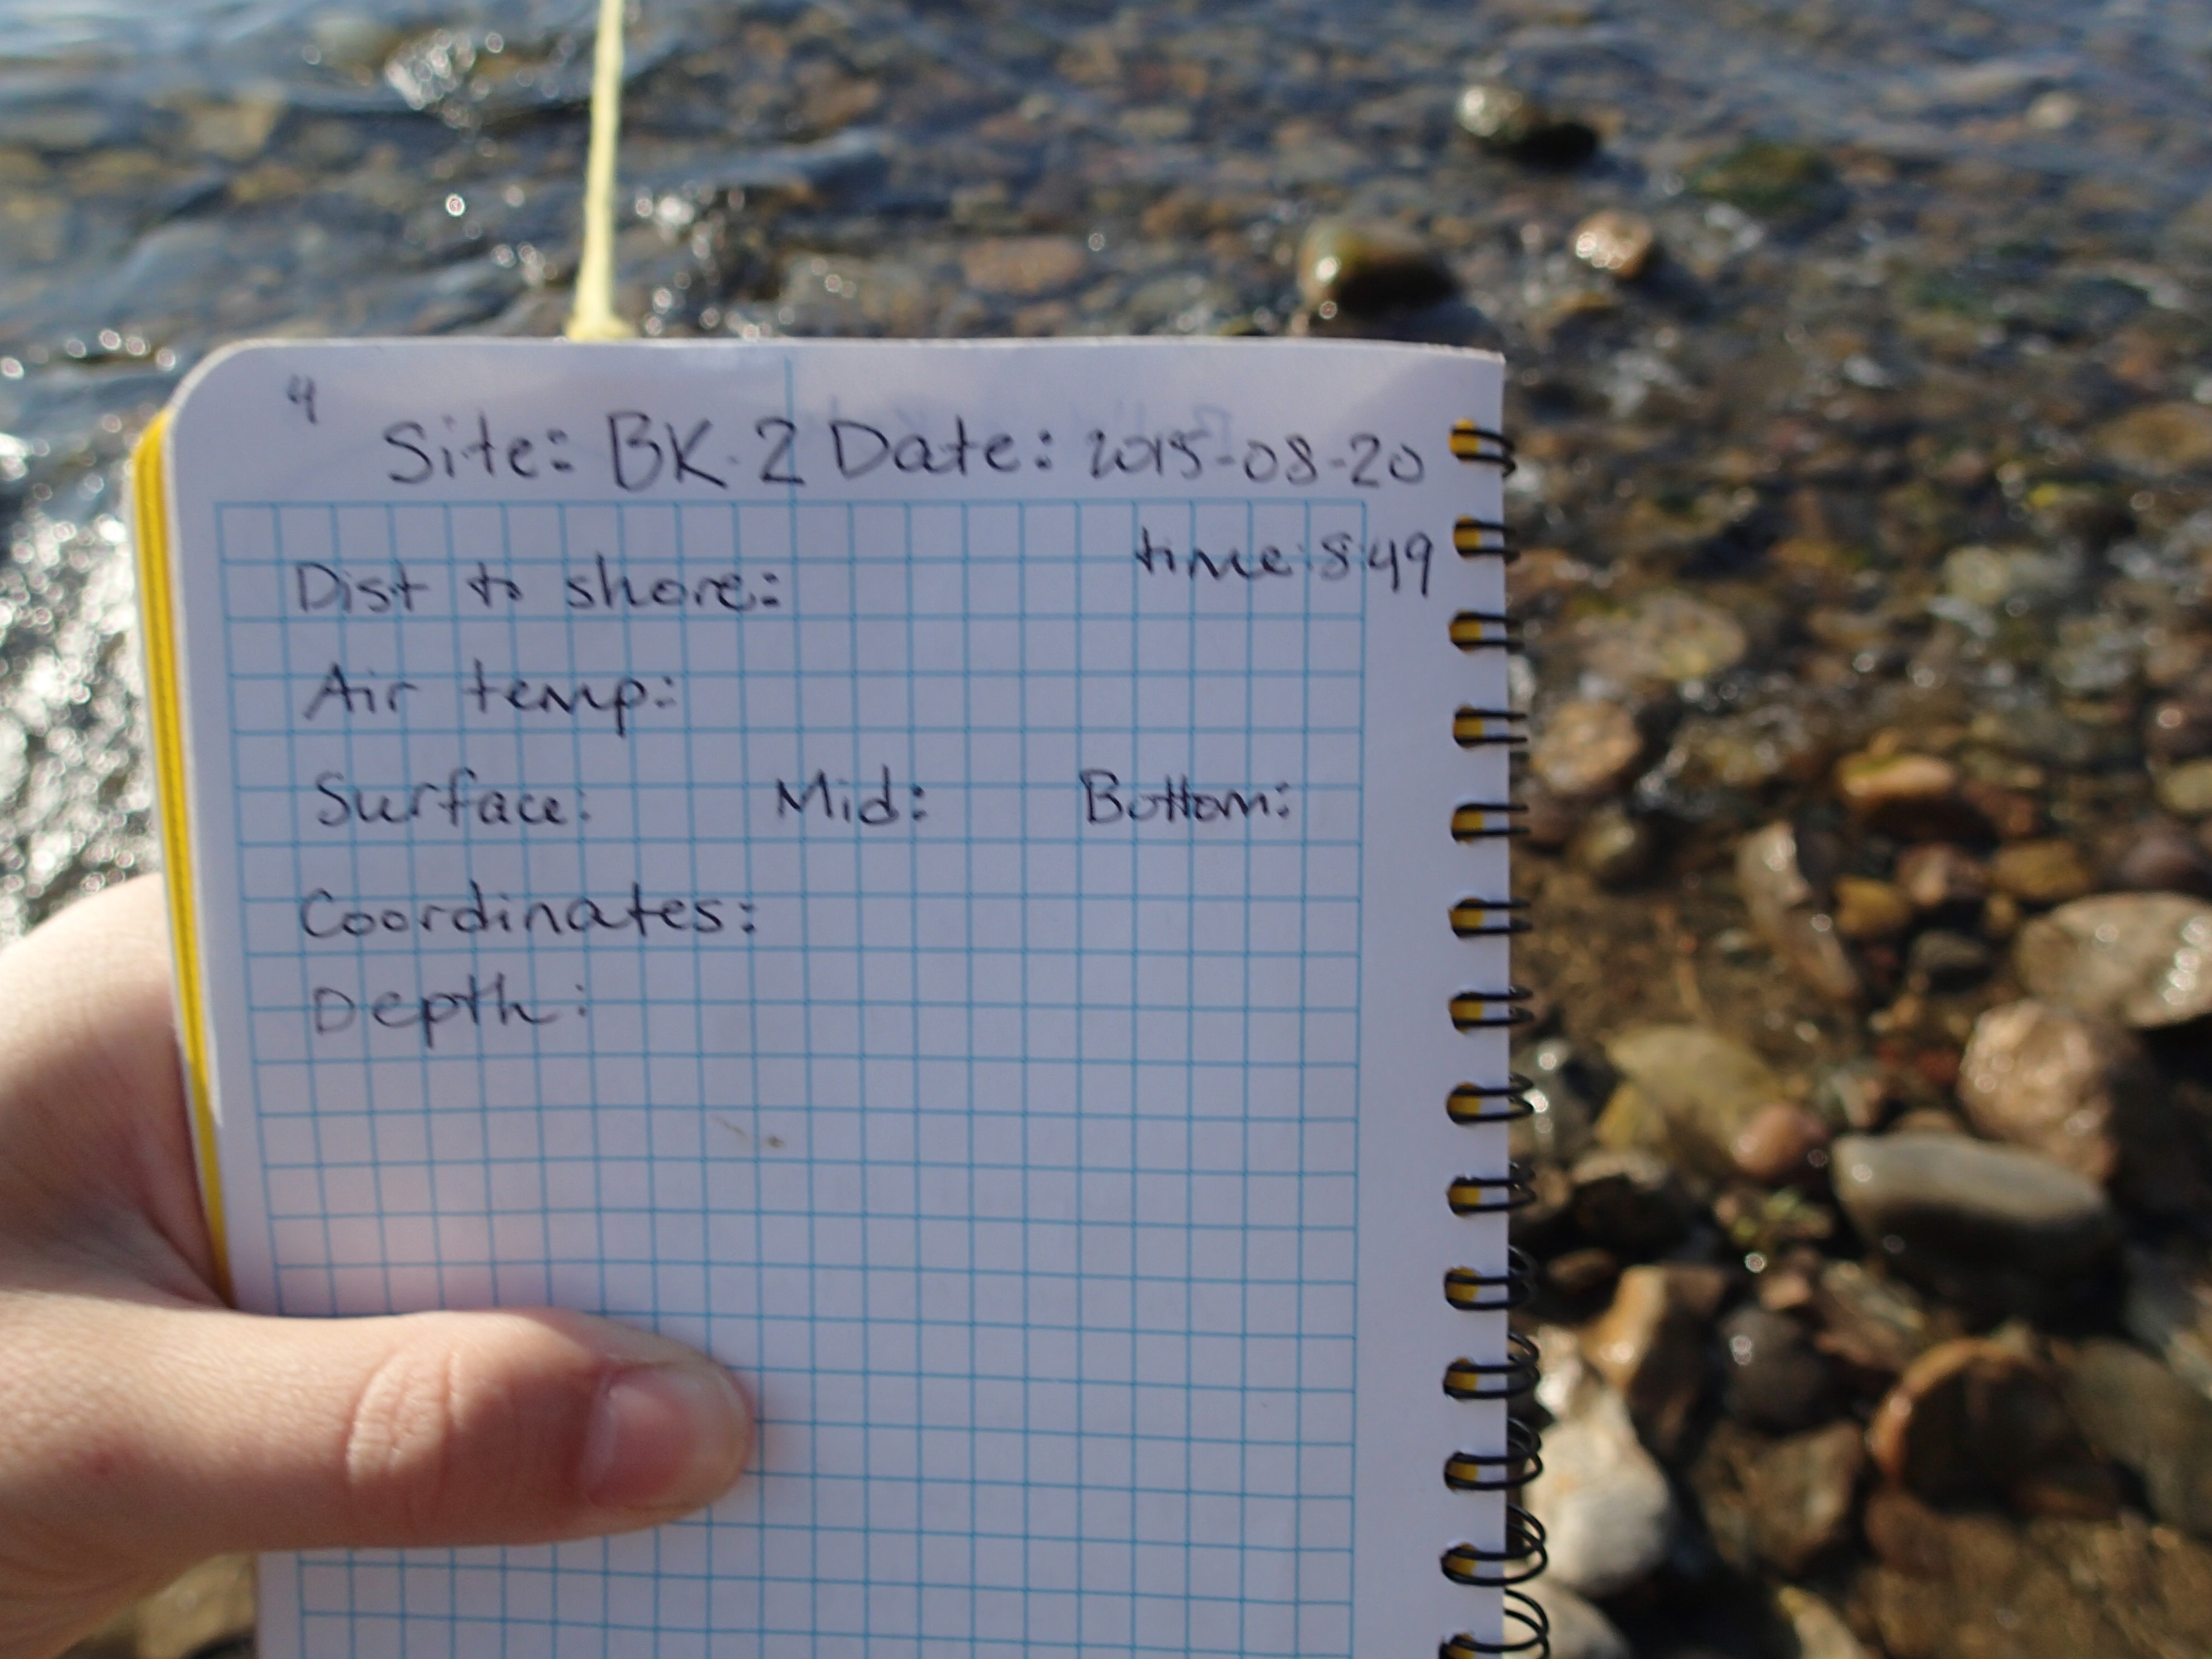 4
Site: BK-2 Date: 2015-08-20
time: 8:49
Dist to shore:
Air temp:
Surface: Mid: Bottom:
Coordinates:
Depth: